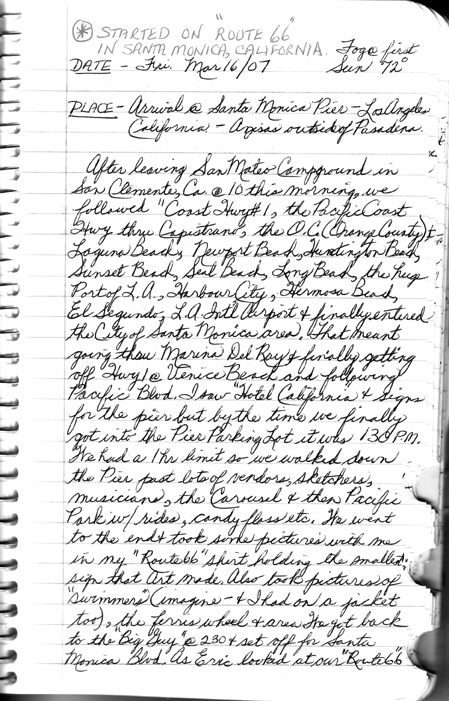 * STARTED ON "ROUTE 66"
IN SANTA MONICA, CALIFORNIA.
Fog @ first
DATE - Fri. Mar 16/07
Sun 72°
PLACE - Arrival @ Santa Monica Pier - Los Angeles
California - Azusa outside of Pasadena.
After leaving San Mateo Campground in
San Clemente, Ca. @ 10 this morning, we
followed "Coast Hwy #1, the Pacific Coast
Hwy thru Capistrano, the O.C. (Orange County) &
Laguna Beach, Newport Beach, Huntington Beach,
Sunset Beach, Seal Beach, Long Beach, the huge
Port of L.A., Harbour City, Hermosa Beach,
El Segundo, L.A. Intl Airport & finally entered
the City of Santa Monica area. That meant
going thru Marina Del Ray & finally getting
off Hwy 1 @ Venice Beach and following
Pacific Blvd. I saw "Hotel California & signs
for the pier but by the time we finally
got into the Pier Parking Lot it was 1:30 P.M.
We had a 1 hr limit so we walked down
the Pier past lots of vendors, sketchers,
musicians, the Carousel & then Pacific
Park w/ rides, candy floss etc. We went
to the end & took some pictures with me
in my "Route 66" shirt holding the smaller
sign that Art made. Also took pictures of
"swimmers" (imagine - & I had on a jacket
too), the ferris wheel & area. We got back
to the "Big Guy" @ 230 & set off for Santa
Monica Blvd. As Eric looked at our "Route 66"